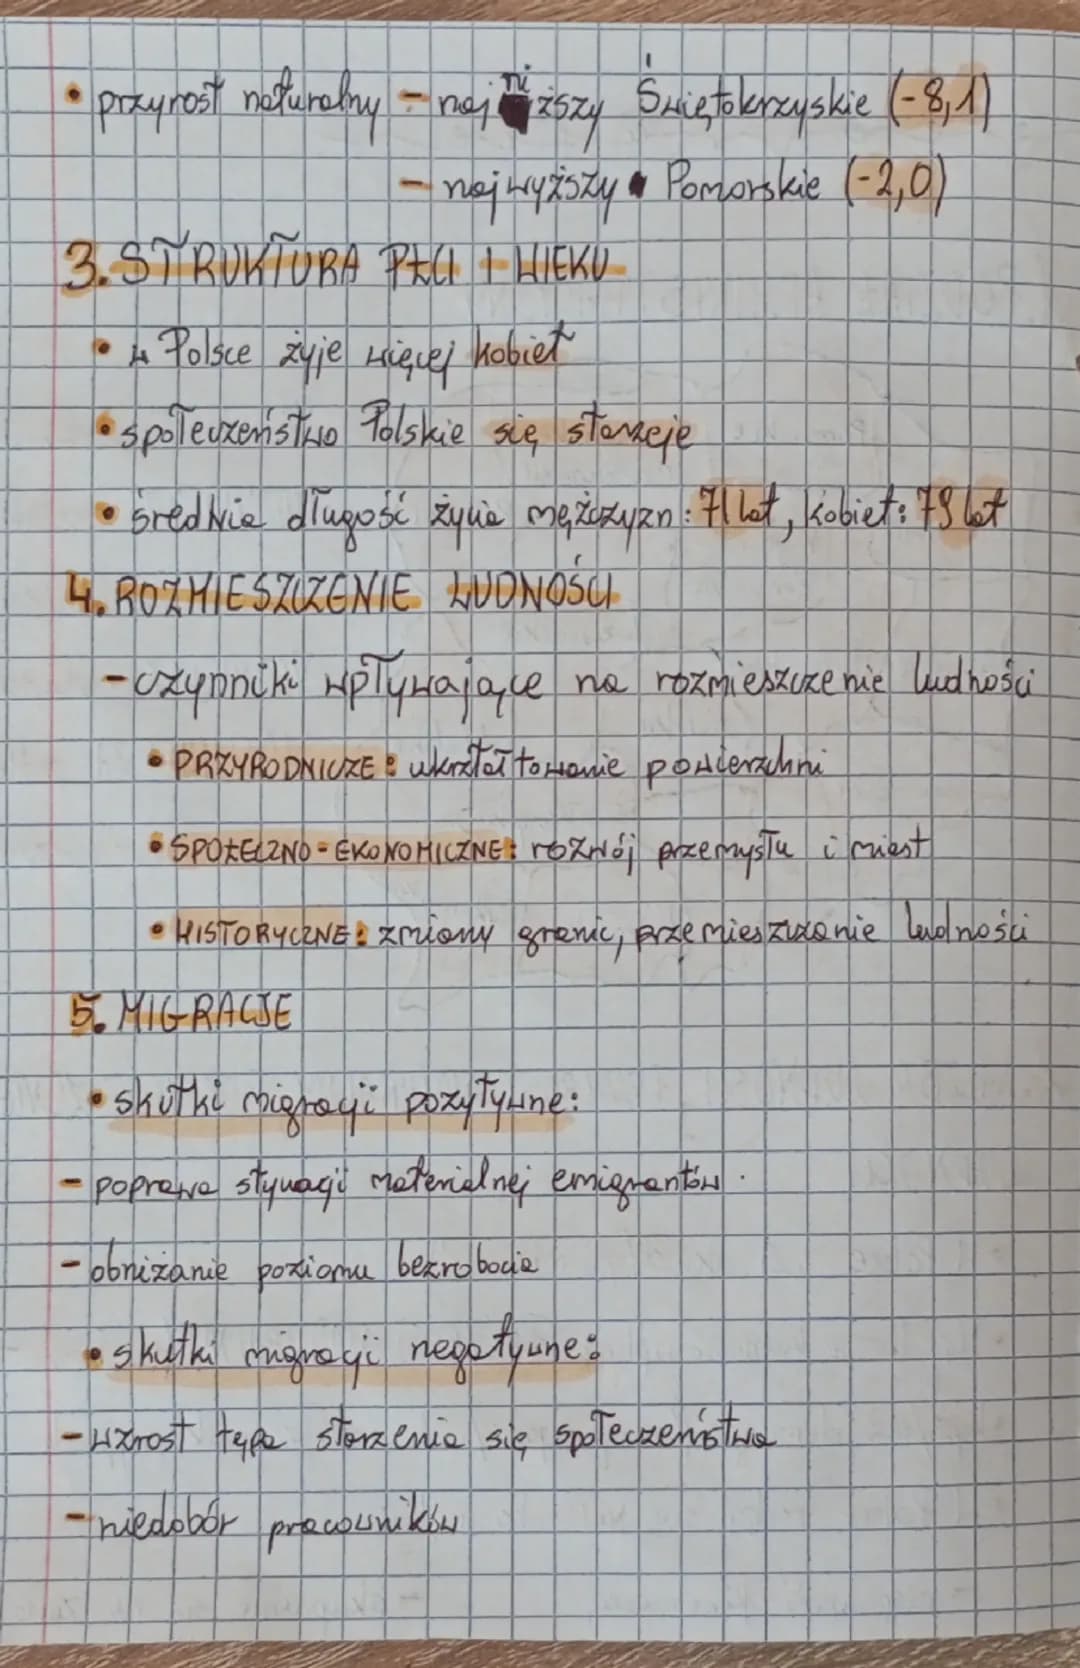 • przyrost naturalny - najniższy Świętokrzyskie (-8,1)
- najwyższy Pomorskie (-2,0)
3. STRUKTURA PŁCI I WIEKU
• w Polsce żyje więcej kobiet
• społeczeństwo Polskie się starzeje
• średnia długość życia mężczyzn: 71 lat, kobiet: 79 lat
4. ROZMIESZCZENIE LUDNOŚCI
- czynniki wpływające na rozmieszczenie ludności
• PRZYRODNICZE: ukształtowanie powierzchni
• SPOŁECZNO-EKONOMICZNE: rozwój przemysłu i miast
• HISTORYCZNE: zmiany granic, przemieszczanie ludności
5. MIGRACJE
• skutki migracji pozytywne:
- poprawa stywacji materialnej emigrantów
- obniżanie poziomu bezrobocia
• skutki migracji negatywne:
- wzrost tępa starzenia się społeczeństwa
- niedobór pracowników